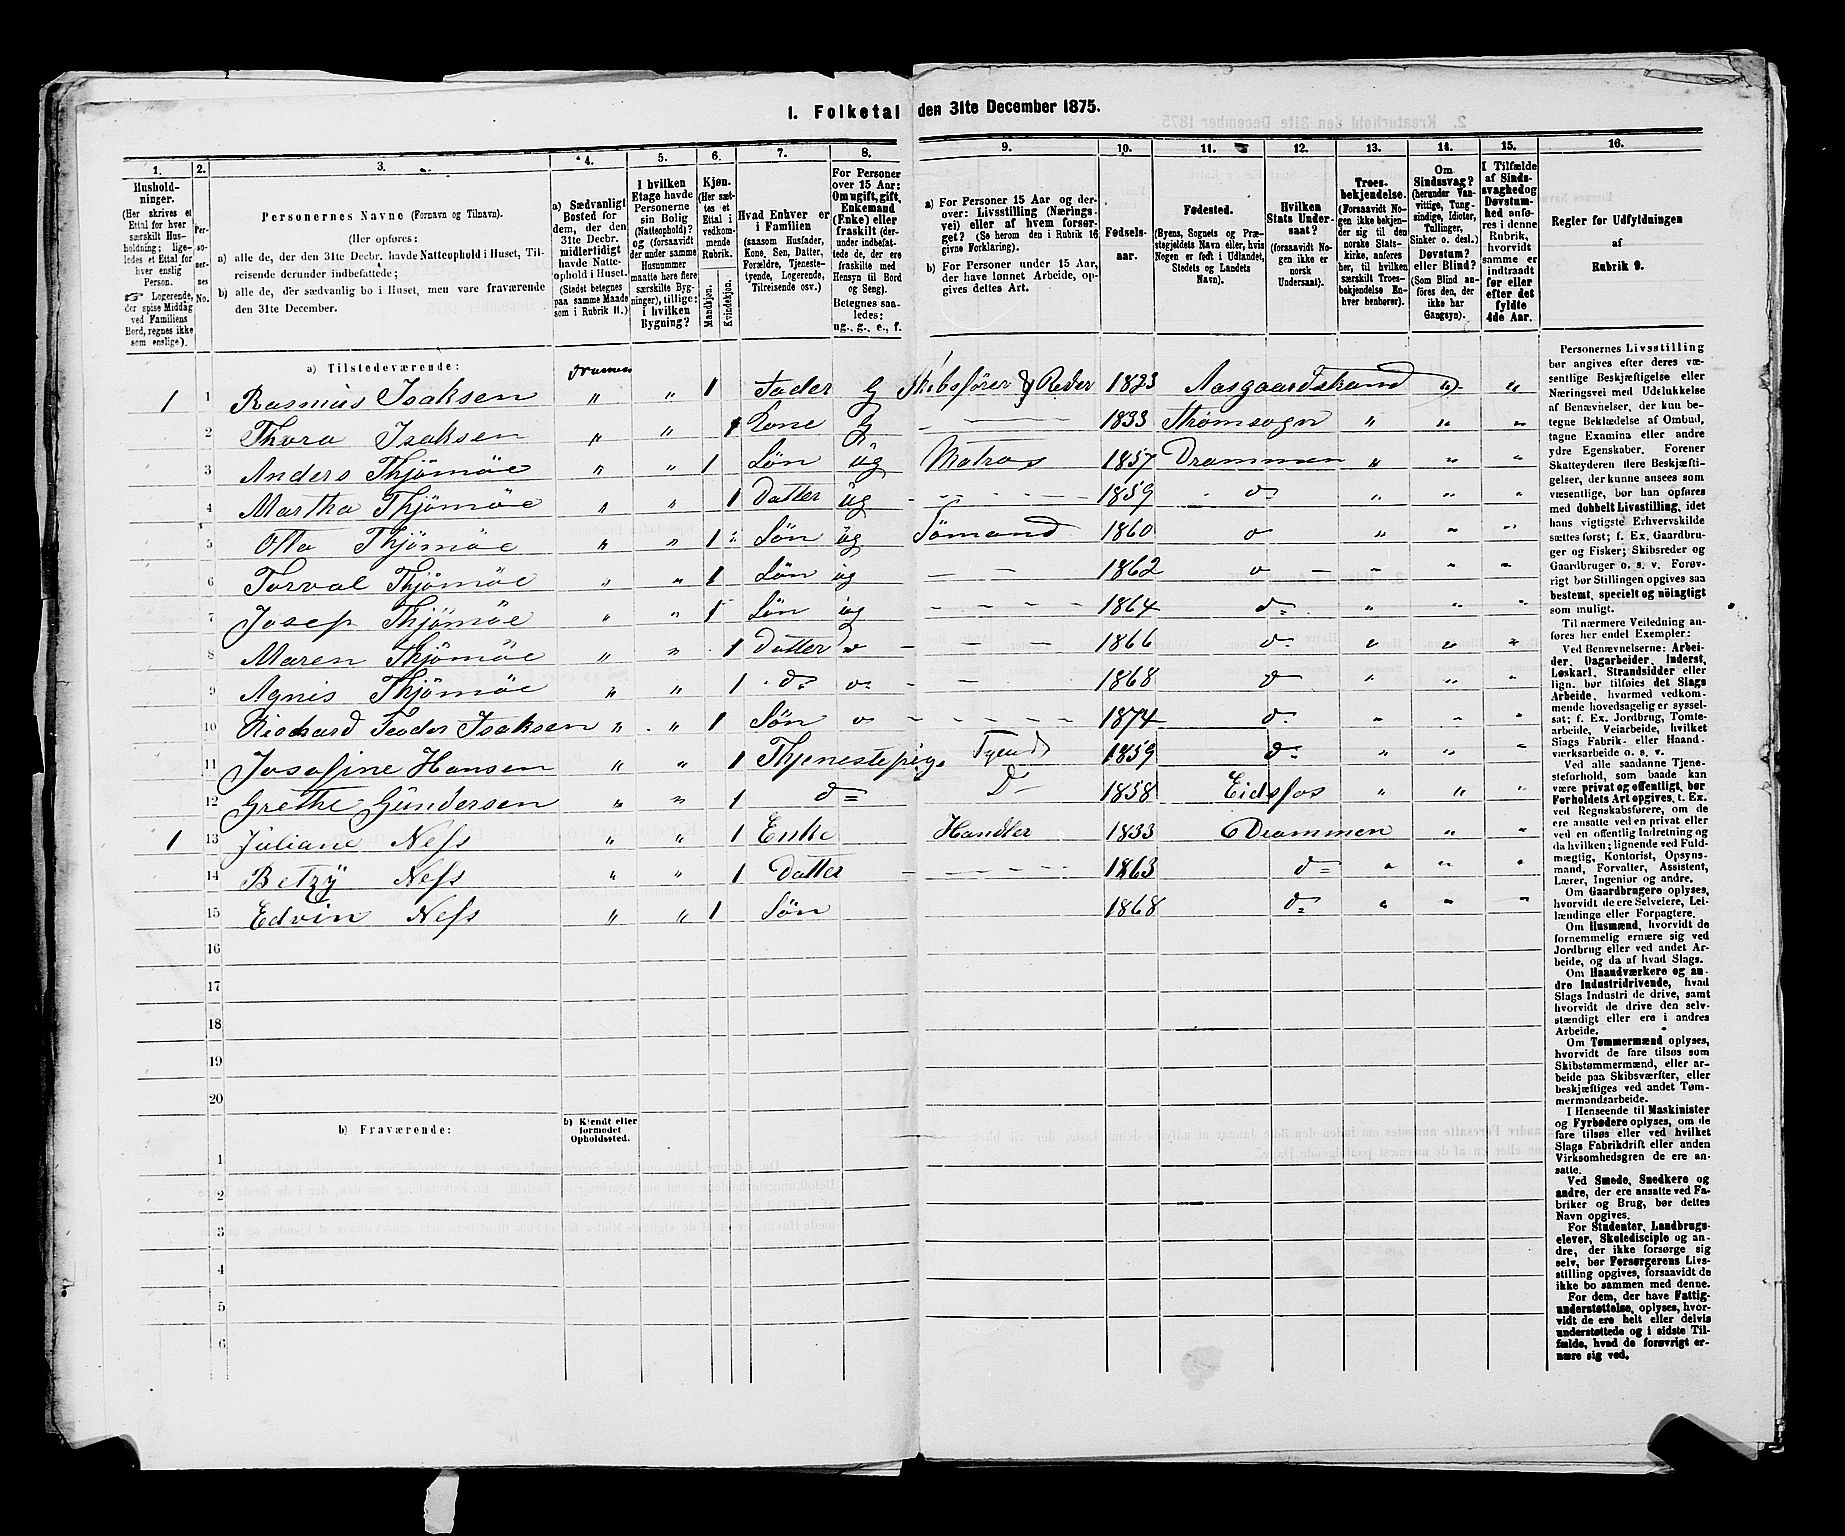 I. Folketal den 31te December 1875.
1. 2. 3. 4. 5. 6. 7. 8. 9. 10. 11. 12. 13. 14. 15. 16.
Husholdninger.
(Her skrives et Ettal for hver særskilt Husholdning; ligeledes et Ettal for hver enslig Person.
☞ Logerende, der spise Middag ved Familiens Bord, regnes ikke som enslige).
Personernes No.
Personernes Navne (Fornavn og Tilnavn).
(Her opføres:
a) alle de, der den 31te Decbr. havde Natteophold i Huset, Tilreisende derunder indbefattede;
b) alle de, der sædvanlig bo i Huset, men vare fraværende den 31te December.
a) Sædvanligt Bosted for dem, der den 31te Decbr. midlertidigt havde Natteophold i Huset. (Stedet betegnes paa samme Maade som i Rubrik 11.)
I hvilken Etage havde Personerne sin Bolig (Natteophold)? og (forsaavidt der under samme Husnummer maatte høre flere særskilte Bygninger), tillige: i hvilken Bygning?
Kjøn. (Her sættes et Ettal i vedkommende Rubrik.
Mandkjøn. Kvindekjøn.
Hvad Enhver er i Familien
(saasom Husfader, Kone, Søn, Datter, Forældre, Tjenestetyende, Logerende, Tilreisende osv.)
For Personer over 15 Aar: Om ugift, gift, Enkemand (Enke) eller fraskilt (derunder indbefattede de, der ere fraskilte med Hensyn til Bord og Seng).
Betegnes saaledes: ug., g., e., f.
a) For Personer 15 Aar og derover: Livsstilling (Næringsvei) eller af hvem forsørget? (Se herom den i Rubrik 16 givne Forklaring).
b) For Personer under 15 Aar, der have lønnet Arbeide, opgives dettes Art.
Fødselsaar.
Fødested.
(Byens, Sognets og Præstegjeldets Navn eller, hvis Nogen er født i Udlandet, Stedets og Landets Navn).
Hvilken Stats Undersaat?
(forsaavidt Nogen ikke er norsk Undersaat).
Troesbekjendelse.
(Forsaavidt Nogen ikke bekjender sig til den norske Statskirke, anføres her, til hvilken særskilt Troesbekjendelse Enhver henhører).
Om Sindssvag? (herunder Vanvittige, Tungsindige, Idioter, Tullinger, Sinker o. desl.) Døvstum? eller Blind? (Som Blind anføres den, der ikke har Gangsyn).
I Tilfælde af Sindssvaghed og Døvstumhed anføres i denne Rubrik, hvorvidt samme er indtraadt før eller efter det fyldte 4de Aar.
Regler for Udfyldningen af Rubrik 9.
a) Tilstedeværende:
Dramen
1 1 Rasmus Isaksen " " 1 Fader G Skibsfører & Reder 1823 Aasgaardstrand " "
2 Thora Isaksen " " 1 Kone G — 1833 Strømsogn " " "
3 Anders Thjømøe " " 1 Søn ug Matros 1857 Drammen " " "
4 Martha Thjømøe " " 1 Datter ug — 1859 do " " "
5 Otto Thjømøe " " 1 Søn ug Sømand 1860 o " " "
6 Torval Thjømøe " " 1 Søn ug — 1862 o — " " "
7 Josep Thjømøe " " 1 Søn ug — 1864 do " " "
8 Maren Thjømøe " " 1 Datter — 1866 do " " "
9 Agnis Thjømøe " " 1 do — 1868 do " " "
10 Richard Teodor Isaksen " " 1 Søn — 1874 do " " "
11 Josefine Hansen " " 1 Thjenestepige Tyende 1859 do " " "
12 Grethe Gundersen " " 1 do D— 1858 Eidsfos " " "
1 13 Juliane Ness " " 1 Enke Handler 1833 Drammen " "
14 Betzy Ness " " 1 Datter — 1863 do " " "
15 Edvin Ness " " 1 Søn 1868 do " " "
16
17
18
19
20
b) Fraværende:
b) Kjendt eller formodet Opholdssted.
1
2
3
4
5
6
Personernes Livsstilling
bør angives efter deres væ-
sentlige Beskjæftigelse eller
Næringsvei med Udelukkelse
af Benævnelser, der kun be-
tegne Beklædelse af Ombud,
tagne Examina eller andre
ydre Egenskaber. Forener
Skatteyderen flere Beskjæfti-
gelser, der kunne ansees som
væsentlige, bør han opføres
med dobbelt Livsstilling, idet
hans vigtigste Erhvervskilde
sættes først; f. Ex. Gaardbru-
ger og Fisker; Skibsreder og
Gaardbruger o. s. v. Forøv-
rigt bør Stillingen opgives saa
bestemt, specielt og nöiagtigt
som muligt.
Til nærmere Veiledning an-
føres her endel Exempler:
Ved Benævnelserne: Arbei-
der, Dagarbeider, Inderst,
Løskarl, Strandsidder eller
lign. bør tilføies det Slags
Arbeide, hvormed vedkom-
mende hovedsagelig er syssel-
sat; f. Ex. Jordbrug, Tomte-
arbeide, Veiarbeide, hvilket
Slags Fabrik- eller Haand-
værksarbeide o. s. v.
Ved alle saadanne Tjene-
steforhold, som baade kan
være privat og offentligt, bør
Forholdets Art opgives, t. Ex.
ved Regnskabsførere, om de
ere ansatte ved en privat eller
ved en offentlig Indretning og
da hvilken; lignende ved Fuld-
mægtig, Kontorist, Opsyns-
mand, Forvalter, Assistent,
Lærer, Ingeniør og andre.
Om Gaardbrugere oplyses,
hvorvidt de ere Selveiere, Lei-
lændinge eller Forpagtere.
Om Husmænd, hvorvidt de
fornemmelig ernære sig ved
Jordbrug eller ved andet Ar-
beide, og da af hvad Slags.
Om Haandværkere og an-
dre Industridrivende, hvad
Slags Industri de drive, samt
hvorvidt de drive den selv-
stændigt eller ere i andres
Arbeide.
Om Tømmermænd oplyses,
hvorvidt de fare tilsøs som
Skibstømmermænd, eller ar-
beide paa Skibsværfter, eller
beskjæftiges ved andet Tøm-
mermandsarbeide.
I Henseende til Maskinister
og Fyrbødere oplyses, om de
fare tilsøs eller ved hvilket
Slags Fabrikdrift eller anden
Virksomhedsgren de ere an-
satte.
Ved Smede, Snedkere og
andre, der ere ansatte ved Fa-
briker og Brug, bør dettes
Navn opgives.
For Studenter, Landbrugs-
elever, Skoledisciple og an-
dre, der ikke forsørge sig
selv, bør Forsørgerens Livs-
stilling opgives, forsaavidt de
ikke bo sammen med denne.
For dem, der have Fattig-
understøttelse, oplyses, hvor-
vidt de ere helt eller delvis
understøttede og i sidste Til-
fælde, hvad de forøvrigt er-
nære sig ved.